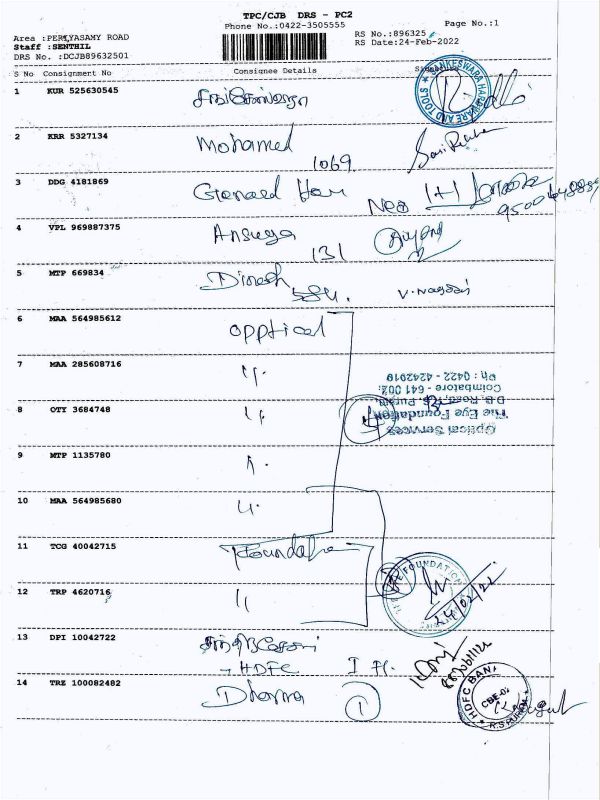 TPC/CJB DRS - PC2
Phone No.:0422-3505555
Page No.:1
Area :PERIYASAMY ROAD
Staff :SENTHIL
DRS No. :DCJB89632501
RS No.:896325
RS Date:24-Feb-2022
S No Consignment No Consignee Details
1 KUR 525630545
SANKESWARA HARDWARE AND TOOLS
2 KRR 5327134 Mohamed
1069
3 DDG 4181869
4 VPL 969887375 Ansuya
131
5 MTP 669834 Dinesh
584. V.Nagaan
6 MAA 564985612 Opptical
7 MAA 285608716 "
8 OTY 3684748 "
Optical Services
The Eye Foundation
D.B. Road, R.S. Puram,
Coimbatore - 641 002.
Ph : 0422 - 4242019
9 MTP 1135780 "
10 MAA 564985680 "
11 TCG 40042715 Foundation
12 TRP 4620716 "
EYE FOUNDATION
24/02/22
13 DPI 10042722
- HDFC I Fl.
14 TRZ 100082482 Dharma 1
HDFC BANK
CBE-02
R.S PURAM